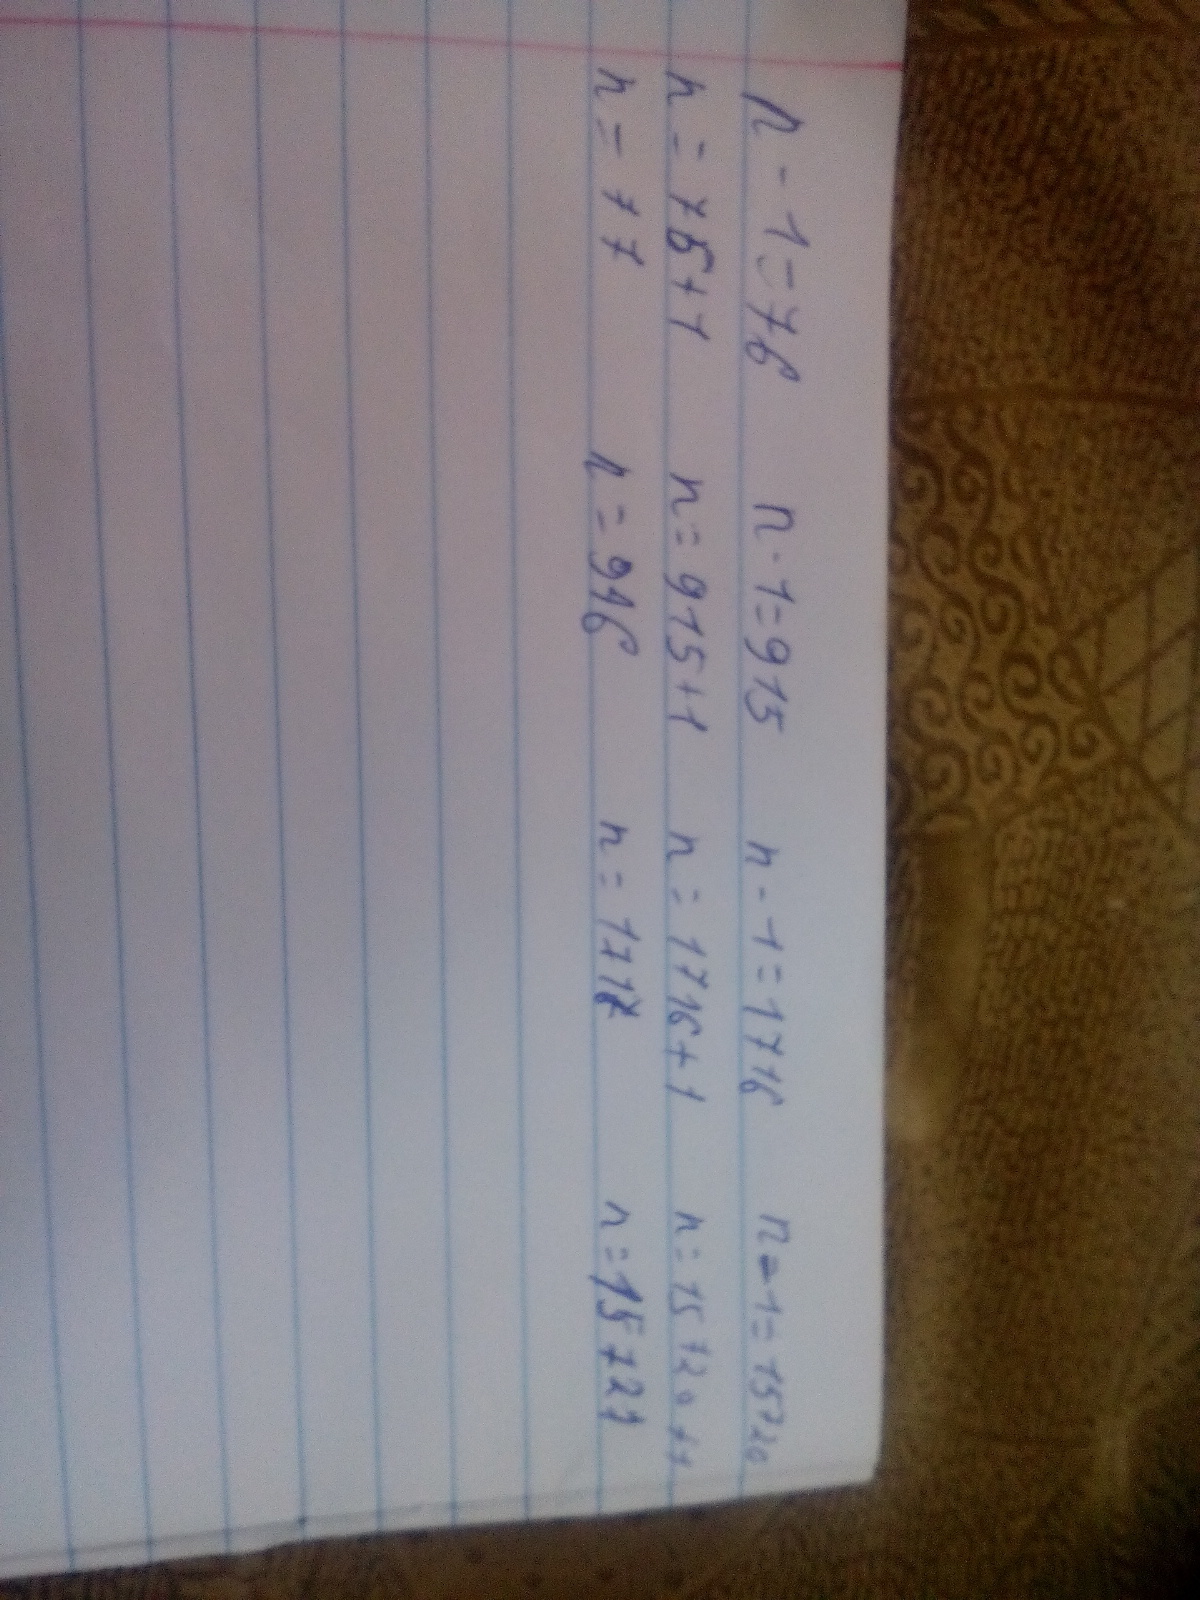 n - 1 = 76 n - 1 = 915 n - 1 = 1716 n - 1 = 15720
n = 76 + 1 n = 915 + 1 n = 1716 + 1 n = 15720 + 1
n = 77 n = 916 n = 1717 n = 15721